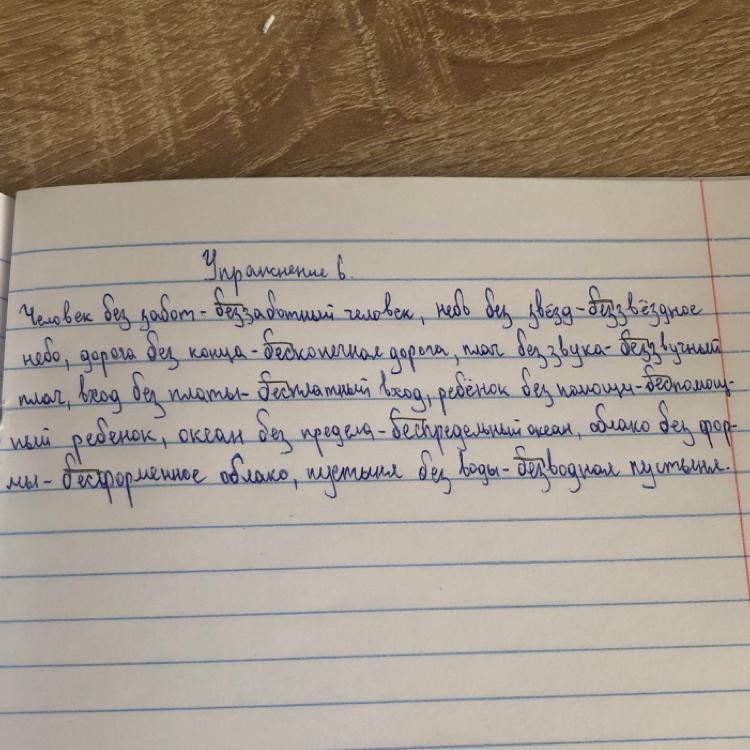 Упражнение 6.
Человек без забот-беззаботный человек, небо без звёзд-беззвёздное
небо, дорога без конца-бесконечная дорога, плач без звука-беззвучный
плач, вход без платы-бесплатный вход, ребёнок без помощи-беспомощ-
ный ребенок, океан без предела-беспредельный океан, облако без фор-
мы-бесформенное облако, пустыня без воды-безводная пустыня.